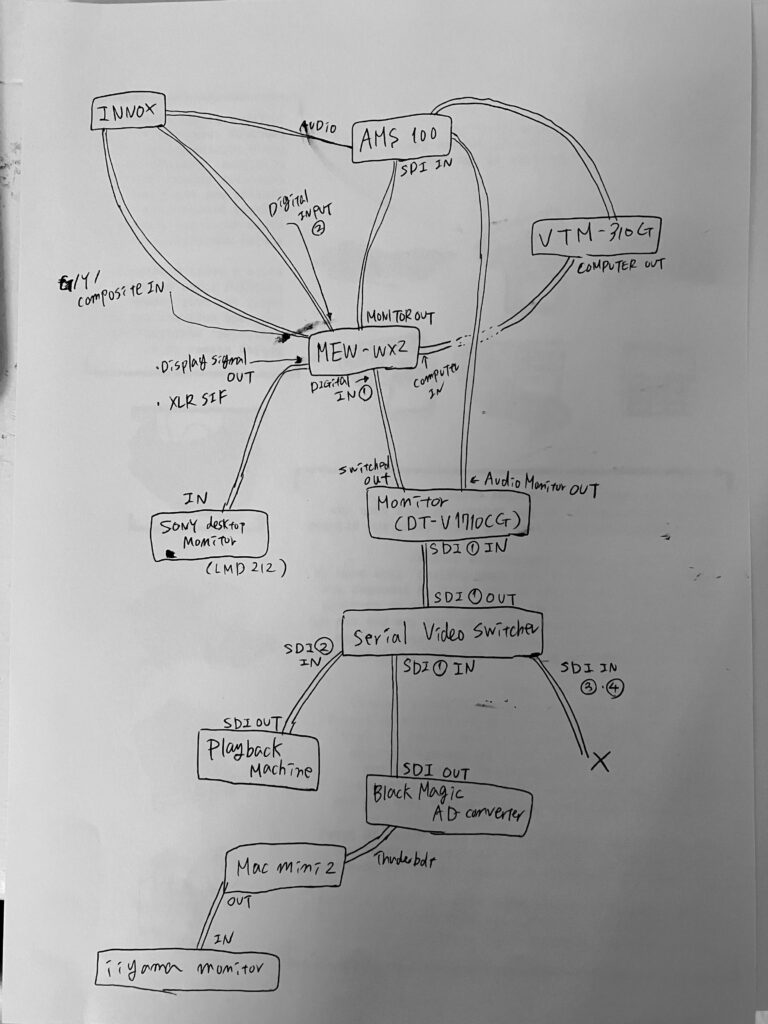 INNOX
AUDIO
AMS 100
SDI IN
Digital
INPUT
②
VTM-310G
COMPUTER OUT
/Y/
composite IN
MONITOR OUT
MEW-WX2
・Display signal
OUT
・XLR SIF
DIGITAL
IN①
Computer
IN
Switched
out
← Audio Monitor OUT
IN
SONY desktop
Monitor
(LMD 212)
Monitor
(DT-V1710CG)
SDI ① IN
SDI ① OUT
Serial Video Switcher
SDI②
IN
SDI ① IN
SDI IN
③・④
X
SDI OUT
Playback
Machine
SDI OUT
Black Magic
AD-converter
Thunderbolt
Mac mini 2
OUT
IN
iiyama monitor